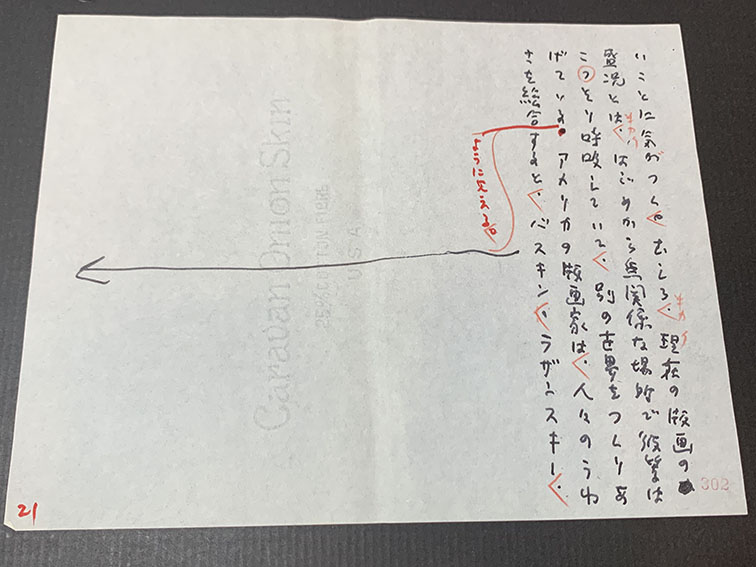 いことに気がつく。むしろ、現在の版画の
盛況とは、はじめから無関係な場所で彼等は
こっそり呼吸していて、別の世界をつくりあ
げている。アメリカの版画家は、人々のうわ
さを総合すると、バスキン、ラザンスキー、
ように見える。
302
21
Caravan Onion Skin
25% COTTON FIBRE
U S A